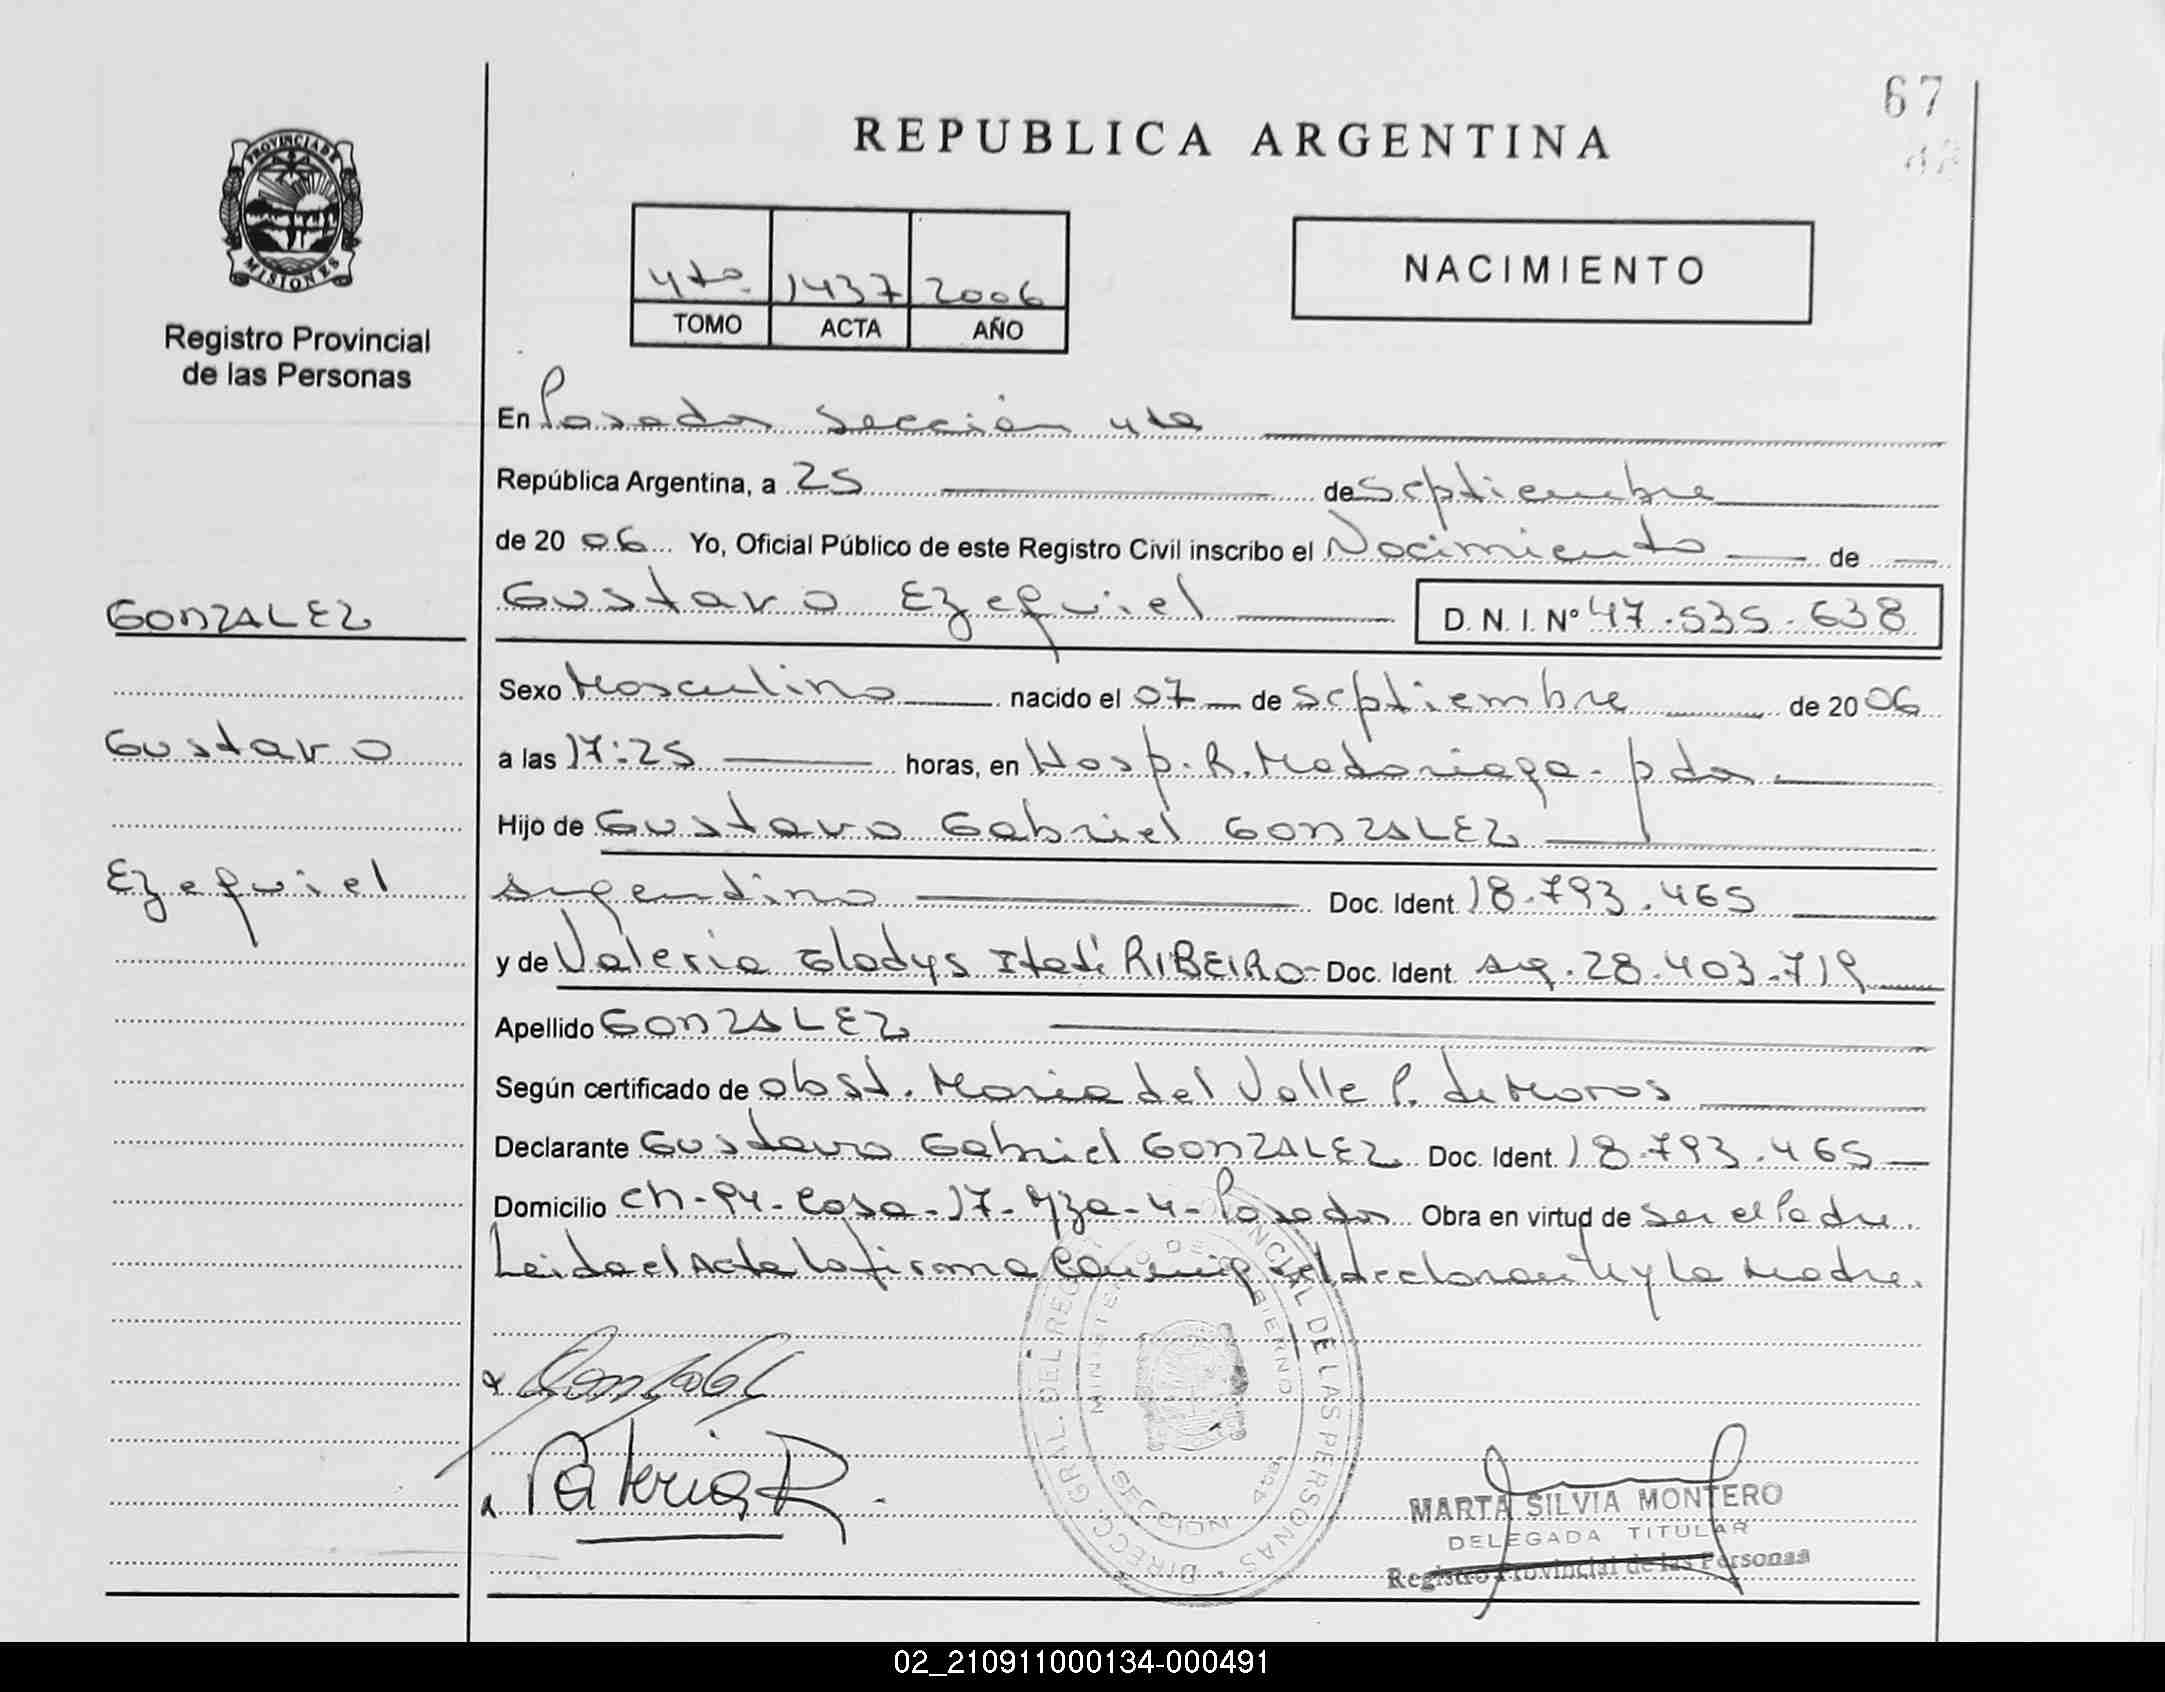 67
REPUBLICA ARGENTINA
PROVINCIA DE
MISIONES
Registro Provincial
de las Personas
4to. 1437 2006
TOMO ACTA AÑO
NACIMIENTO
En Posadas Sección 4ta
República Argentina, a 25 de Septiembre
de 20 06 Yo, Oficial Público de este Registro Civil inscribo el Nacimiento de
GONZALEZ
Gustavo Ezequiel D. N. I. Nº 47.535.638
Sexo Masculino nacido el 07 de Septiembre de 20 06
Gustavo
a las 17:25 horas, en Hosp. R. Madariaga - pdas.
Hijo de Gustavo Gabriel GONZALEZ
Ezequiel
argentino Doc. Ident. 18.793.465
y de Valeria Gladys Itatí RIBEIRO - Doc. Ident. arg. 28.403.719
Apellido GONZALEZ
Según certificado de obst. Maria del Valle P. de Moros
Declarante Gustavo Gabriel GONZALEZ Doc. Ident. 18.793.465
Domicilio Ch-94-Casa-17-Mza-4-Posadas Obra en virtud de Ser el Padre.
Leida el Acta la firma Conmigo el declarante y la Madre.
Gonzalez
Valeria R.
DIRECC. GRAL. DEL REG. PROVINCIAL DE LAS PERSONAS
MINISTERIO DE GOBIERNO
SECCION 4ta
MARTA SILVIA MONTERO
DELEGADA TITULAR
Registro Provincial de las Personas
02_210911000134-000491